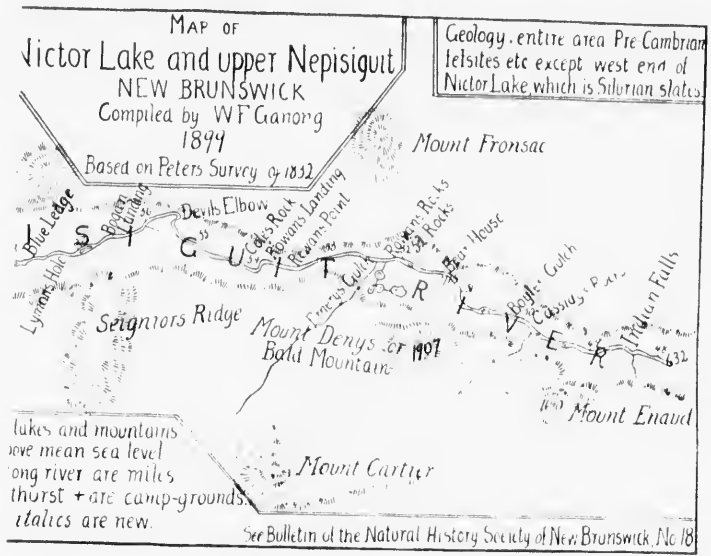 MAP OF
Nictor Lake and upper Nepisiguit
NEW BRUNSWICK
Compiled by W F Ganong
1899
Based on Peters Survey of 1832
Geology. entire area Pre-Cambrian
felsites etc except west end of
Nictor Lake, which is Silurian slates.
Mount Fronsac
Blue Ledge
Bogan Landing
56
Devils Elbow
55
Coles Rock
54
Rowans Landing
Rowans Point
Rocks
Bear House
Gulch
Indian Falls
Lymans Hole
I S I G U I T
R I V E R
632
Seigniors Ridge
Gulch
Mount Denys or 1907
Bald Mountain
Mount Enaud
Mount Cartier
lakes and mountains
ove mean sea level
ong river are miles
thurst + are camp-grounds.
italics are new.
See Bulletin of the Natural History Society of New Brunswick, No 18